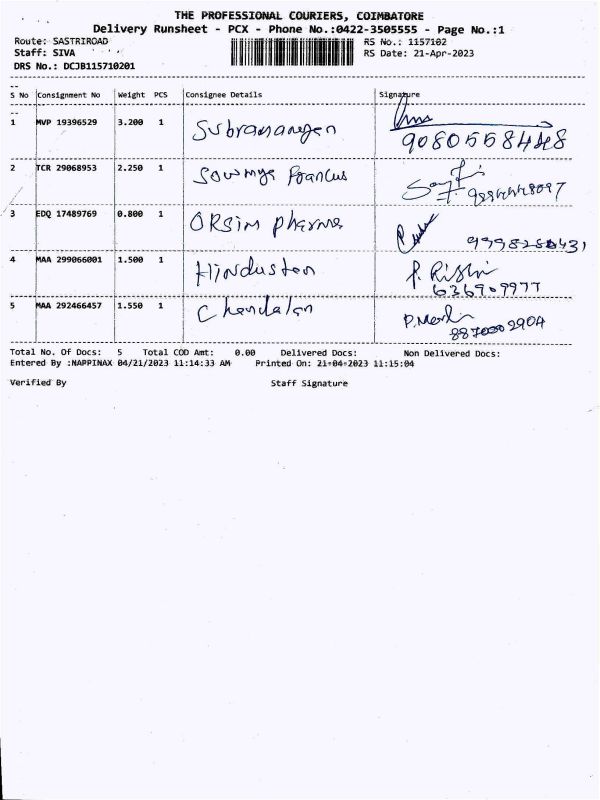 THE PROFESSIONAL COURIERS, COIMBATORE
Delivery Runsheet - PCX - Phone No.:0422-3505555 - Page No.:1
Route: SASTRIROAD
RS No.: 1157102
Staff: SIVA
RS Date: 21-Apr-2023
DRS No.: DCJB115710201
S No Consignment No Weight PCS Consignee Details Signature
1 MVP 19396529 3.200 1 Subramaniyan
9080558448
2 TCR 29068953 2.250 1 Sowmya
3 EDQ 17489769 0.800 1 ORSim Pharma
4 MAA 299066001 1.500 1 Hindustan P. Rishi
636909977
5 MAA 292466457 1.550 1 Chandalan
8870002904
Total No. Of Docs: 5 Total COD Amt: 0.00 Delivered Docs: Non Delivered Docs:
Entered By :NAPPINAX 04/21/2023 11:14:33 AM Printed On: 21-04-2023 11:15:04
Verified By Staff Signature